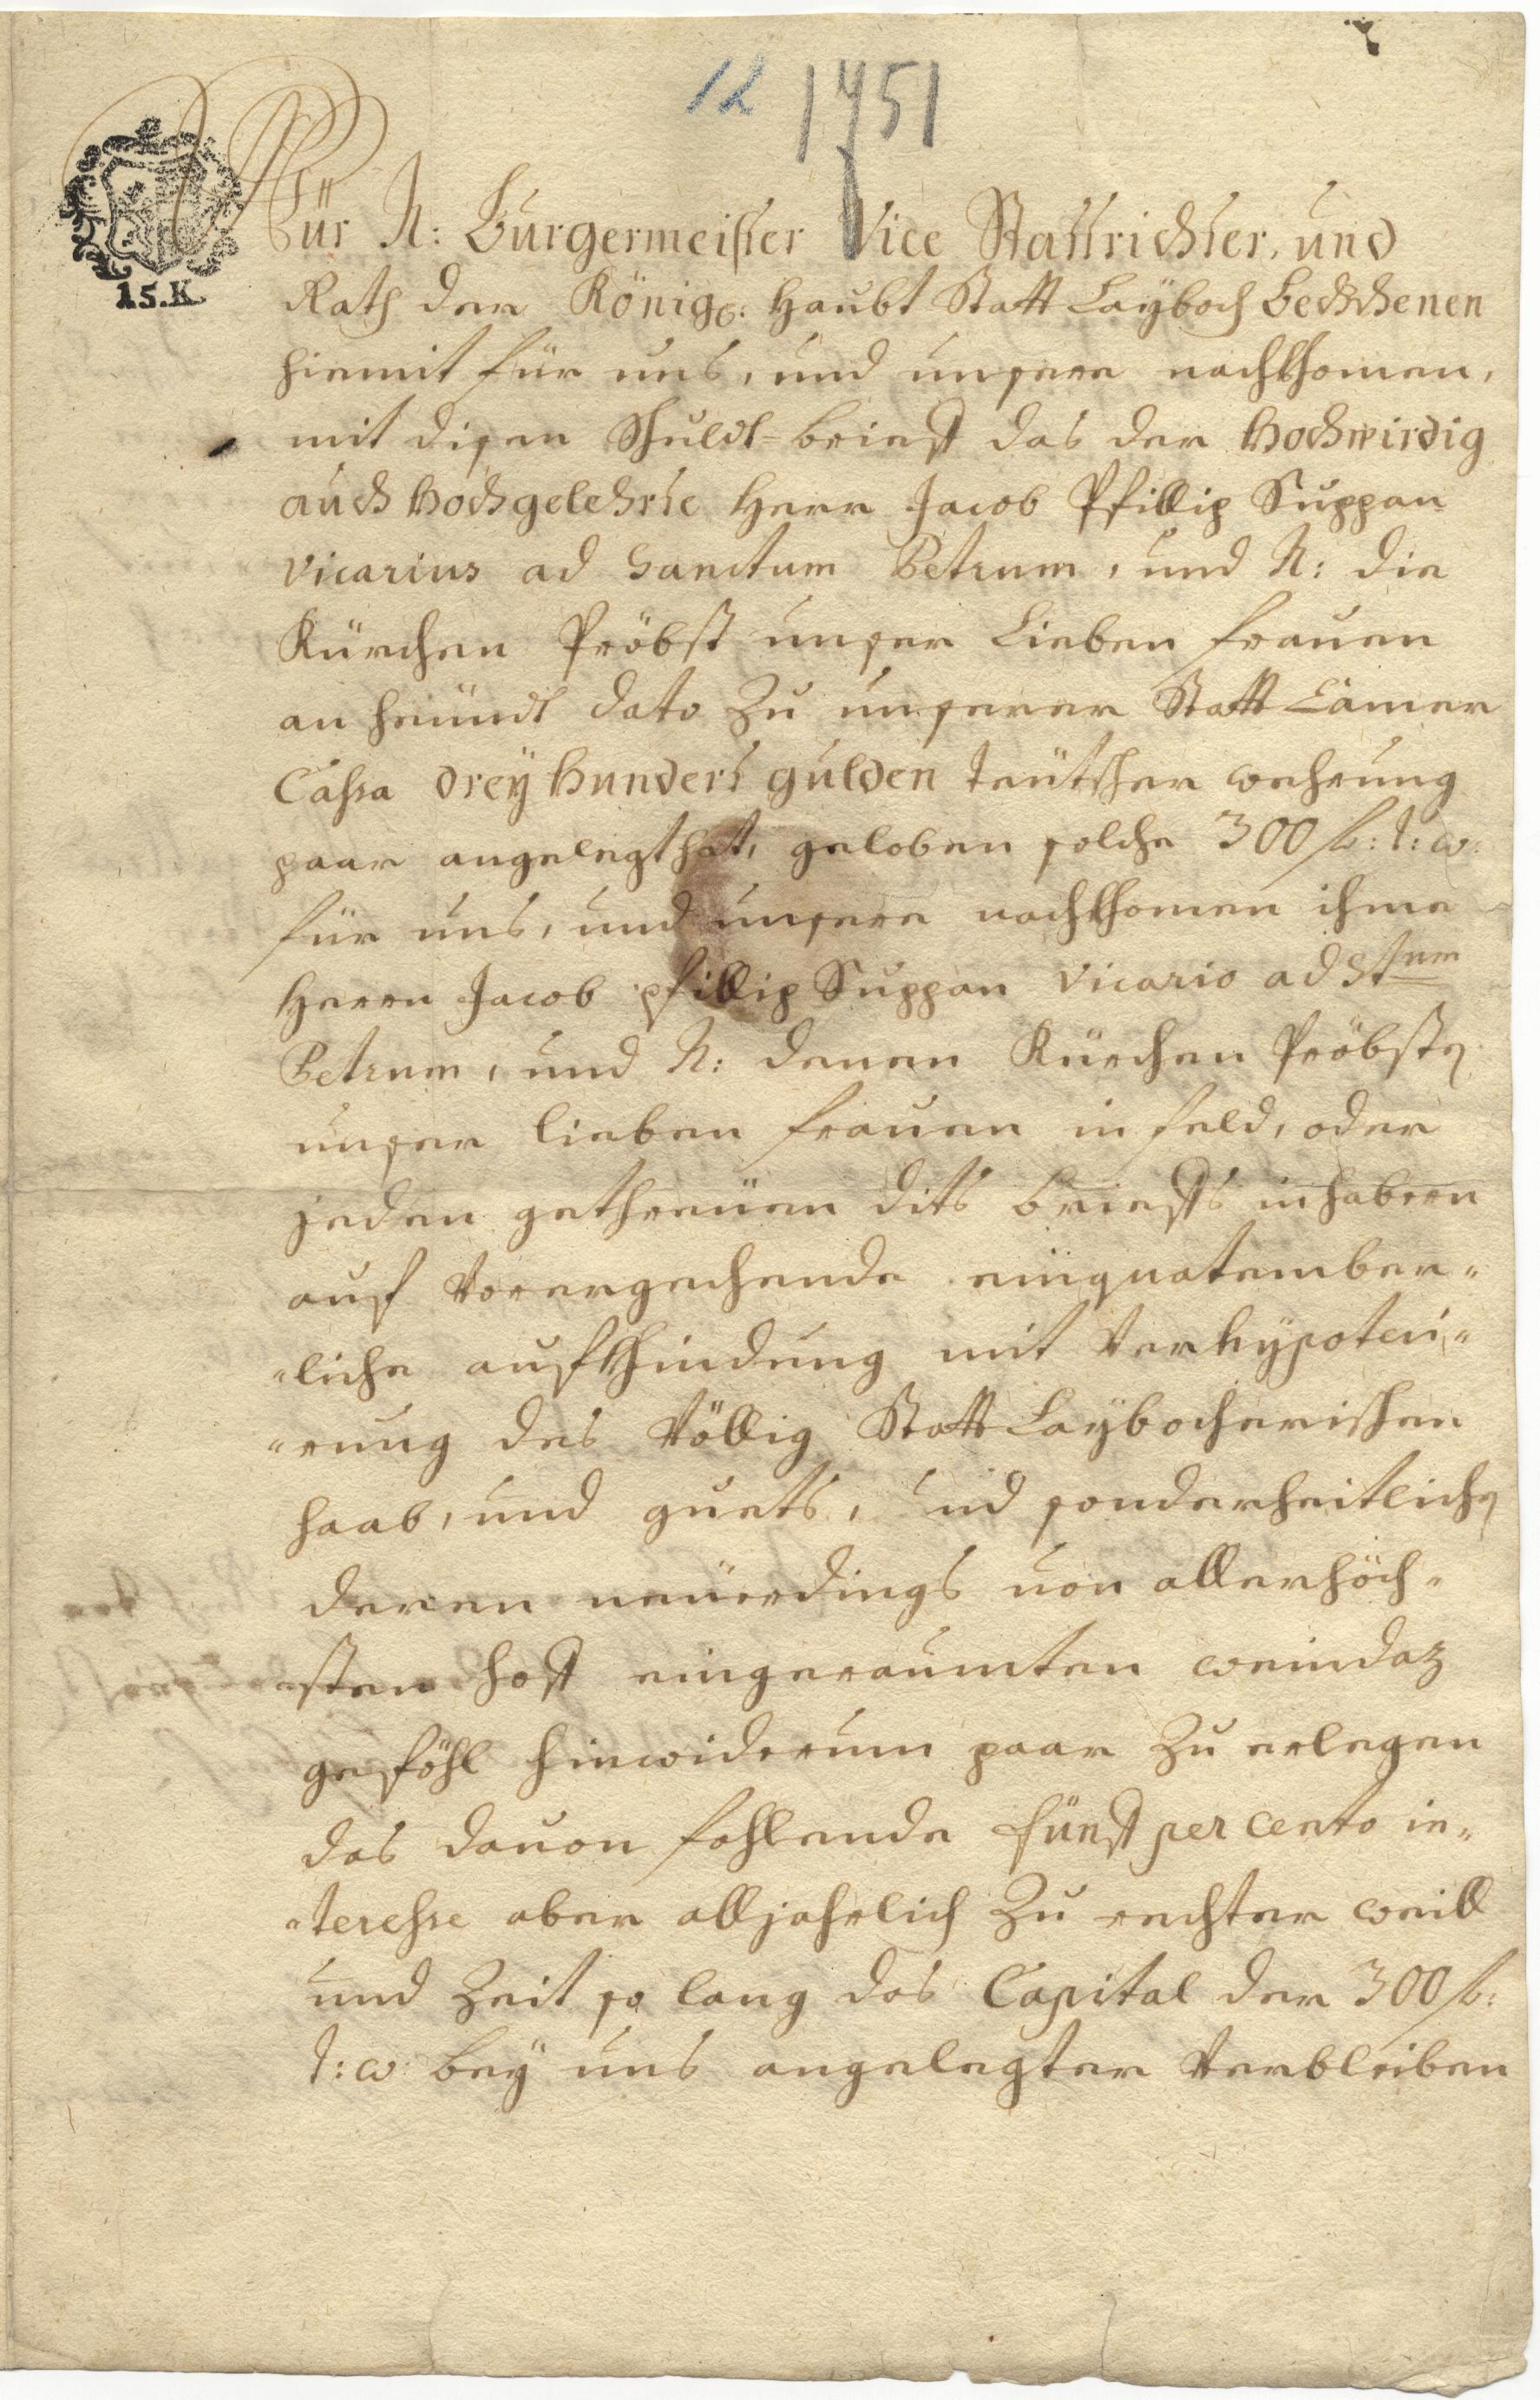 12 1751
15.K.
Wür N: Burgermeister Vice Stattrichter, und
Rath der Königl: Haubt Statt Layboch bechchenen
hiemit für uns, und unsere nachkhomen,
mit disen Schuldt-brieff das der Hochwirdig
auch Hochgelehrte Herr Jacob Phillip Suppan
Vicarius ad Sanctum Petrum, und N: die
Kürchen Pröbst unser Lieben Frauen
an heündt dato Zu unserer Statt Camer
Cassa drey Hundert gulden teütscher wehrung
paar angelegt hat, geloben solche 300 fl: t: w:
für uns, und unsere nachkhomen ihme
Herrn Jacob Phillip Suppan Vicario ad Stum
Petrum, und N: denen Kürchen Pröbsten
unser lieben Frauen in feld, oder
jeden gethreüen dits brieffs inhabern
auf Vorergechende einquatember-
-liche aufkhindung mit Verhypoteci-
-rung des Völlig Statt Laybocherischen
haab, und guetts, und sonderheitlichen
deren neüerdings von allerhöch-
sten Hoff eingeraumten weindaz
geföhl hinwiderum paar Zu erlegen
das davon fohlende fünff per cento in-
-teresse aber alljahrlich Zu rechter weill
und Zeit so lang das Capital der 300 fl:
t: w: bey uns angelegter Verbleiben